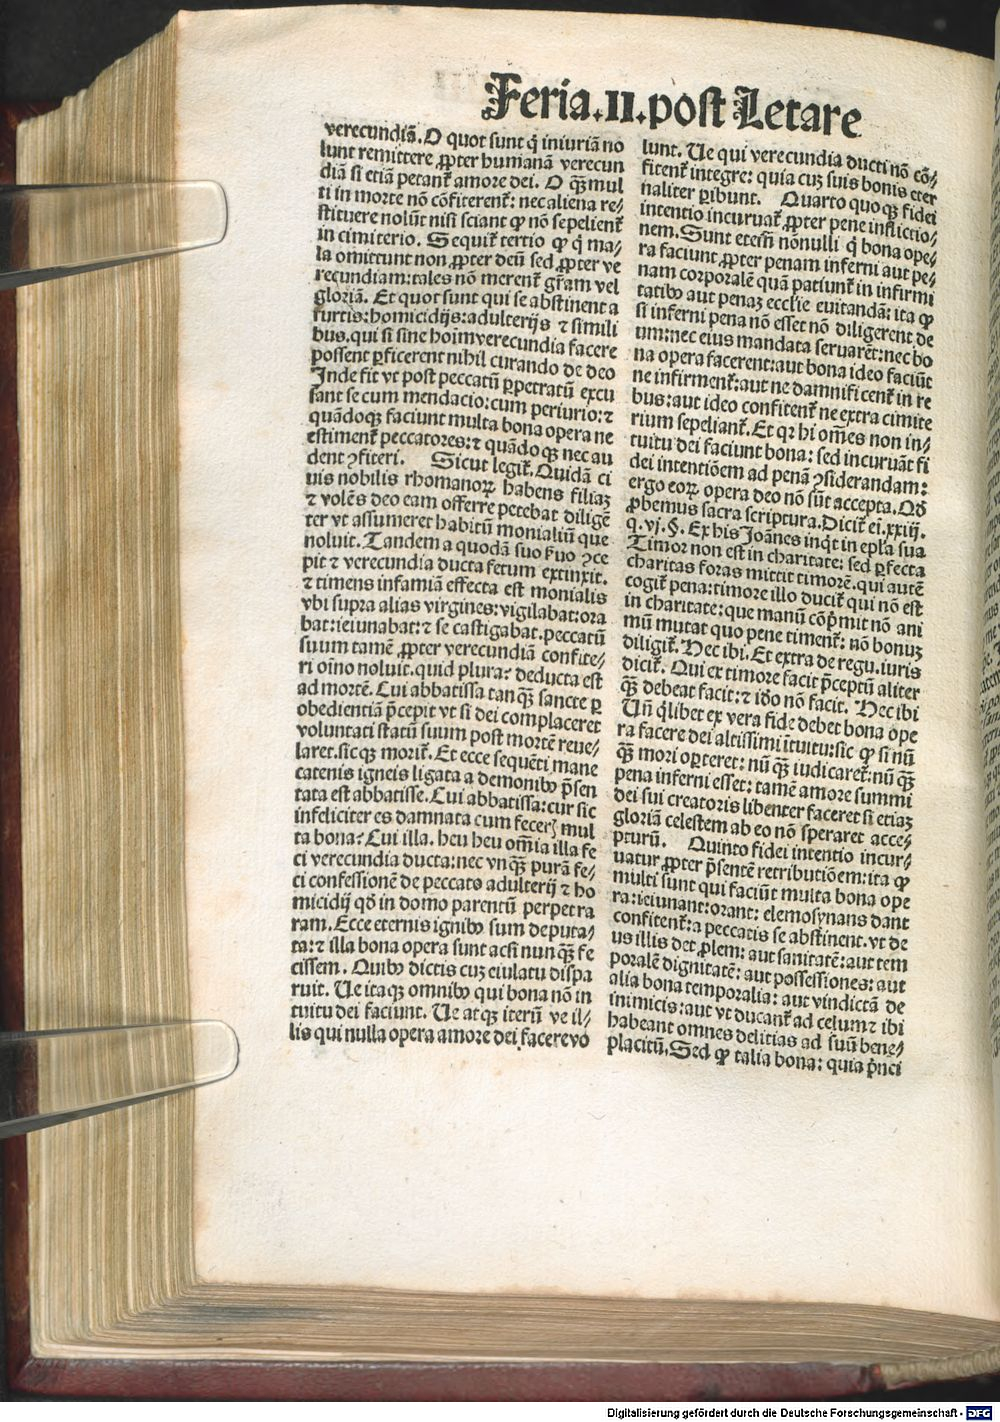 Feria.II.post Letare
verecundiã.O quot sunt q̃ iniuriã no
lunt remittere ꝓpter humanã verecun
diã si etiã petant̃ amore dei. O qꝫ̃ mul
ti in morte nõ cõfiterent̃: nec aliena re⸗
stituere nolũt nisi sciant ꝙ nõ sepelient̃
in cimiterio. Sequit̃ tertio ꝙ q̃ ma⸗
la omittunt non ꝓpter deũ sed ꝓpter ve
recundiam:tales nõ merent̃ gr̃am vel
gloriã. Et quot sunt qui se abstinent a
furtis:homicidijs:adulterijs ⁊ simili
bus.qui si sine hoĩm verecundia facere
possent ꝑficerent nihil curando de deo
Inde fit vt post peccatũ ꝑpetratũ excu
sant se cum mendacio:cum periurio:⁊
quãdoqꝫ faciunt multa bona opera ne
estiment̃ peccatores:⁊ quãdoqꝫ nec au
dent ꝯfiteri. Sicut legit̃. Quidã ci
uis nobilis rhomanoꝝ habens filiaꝫ
⁊ volẽs deo eam offerre petebat diligẽ
ter vt assumeret habitũ monialiũ que
noluit. Tandem a quodã suo ẜuo ꝯce
pit ⁊ verecundia ducta fetum extinxit.
⁊ timens infamiã effecta est monialis
vbi supra alias virgines:vigilabat:ora
bat:ieiunabat:⁊ se castigabat.peccatũ
suum tamẽ ꝓpter verecundiã confite⸗
ri oĩno noluit.quid plura? deducta est
ad mortẽ. Cui abbatissa tanqꝫ̃ sancte ꝑ
obedientiã p̃cepit vt si dei complaceret
voluntati statũ suum post mortẽ reue⸗
laret.sicqꝫ morit̃. Et ecce sequẽti mane
catenis igneis ligata a demonibꝰ p̃sen
tata est abbatisse. Cui abbatissa:cur sic
infeliciter es damnata cum feceris mul
ta bona? Cui illa. heu heu om̃ia illa fe
ci verecundia ducta:nec vnqꝫ̃ purã fe⸗
ci confessionẽ de peccato adulterij ⁊ ho
micidij qd̃ in domo parentũ perpetra
ram. Ecce eternis ignibꝰ sum deputa⸗
ta:⁊ illa bona opera sunt acsi nunqꝫ̃ fe
cissem. Quibꝰ dictis cuꝫ eiulatu dispa
ruit. Ue itaqꝫ omnibꝰ qui bona nõ in
tuitu dei faciunt. Ue atqꝫ iterũ ve il⸗
lis qui nulla opera amore dei facere vo
lunt. Ue qui verecundia ducti nõ cõ⸗
fitent̃ integre: quia cuꝫ suis bonis eter
naliter ꝑibunt. Quarto quoqꝫ fidei
intentio incuruat̃ ꝓpter pene inflictio⸗
nem. Sunt etem̃ nonulli q̃ bona ope⸗
ra faciunt ꝓpter penam inferni aut pe⸗
nam corporalẽ quã patiunt̃ in infirmi
tatibꝰ aut penaꝫ ecclie euitandã: ita ꝙ
si inferni pena nõ esset nõ diligerent de
um:nec eius mandata seruarẽt:nec bo
na opera facerent:aut bona ideo faciũt
ne infirment̃:aut ne damnificent̃ in re
bus:aut ideo confitent̃ ne extra cimite
rium sepeliant̃. Et qꝛ hi om̃es non in⸗
tuitu dei faciunt bona: sed incuruãt fi
dei intentiõem ad penã ꝯsiderandam:
ergo eoꝝ opera deo nõ sũt accepta. Qd̃
ꝓbemus sacra scriptura. Dicit̃ ei.xxiij.
q.vj.§. Ex his Joãnes inq̃t in epl̃a sua
Timor non est in charitate: sed ꝑfecta
charitas foras mittit timorẽ.qui autẽ
cogit̃ pena:timore illo ducit̃ qui nõ est
in charitate:que manũ cõp̃mit nõ ani
mũ mutat quo pene timent̃: nõ bonuꝫ
diligit̃. Hec ibi. Et extra de regu.iuris
dicit̃. Qui ex timore facit p̃ceptũ aliter
qꝫ̃ debeat facit:⁊ iõo nõ facit. Hec ibi
Uñ q̃libet ex vera fide debet bona ope
ra facere dei altissimi ĩtuitu:sic ꝙ si nũ
qꝫ̃ mori oꝑteret: nũqꝫ̃ iudicaret̃:nũqꝫ̃
pena inferni esset: tamẽ amore summi
dei sui creatoris libenter faceret si etiaꝫ
gloriã celestem ab eo nõ speraret acce⸗
pturũ. Quinto fidei intentio incur⸗
uatur ꝓpter p̃sentẽ retributiõem:ita ꝙ
multi sunt qui faciũt multa bona ope
ra:ieiunant:orant: elemosynans dant
confitent̃:a peccatis se abstinent.vt de
us illis det ꝓlem: aut sanitatẽ:aut tem
poralẽ dignitatẽ: aut possessiones: aut
alia bona temporalia: aut vindictã de
inimicis:aut vt ducant̃ ad celum ⁊ ibi
habeant omnes delitias ad suũ bene⸗
placitũ. Sed ꝙ talia bona: quia p̃nci
Digitalisierung gefördert durch die Deutsche Forschungsgemeinschaft - DFG